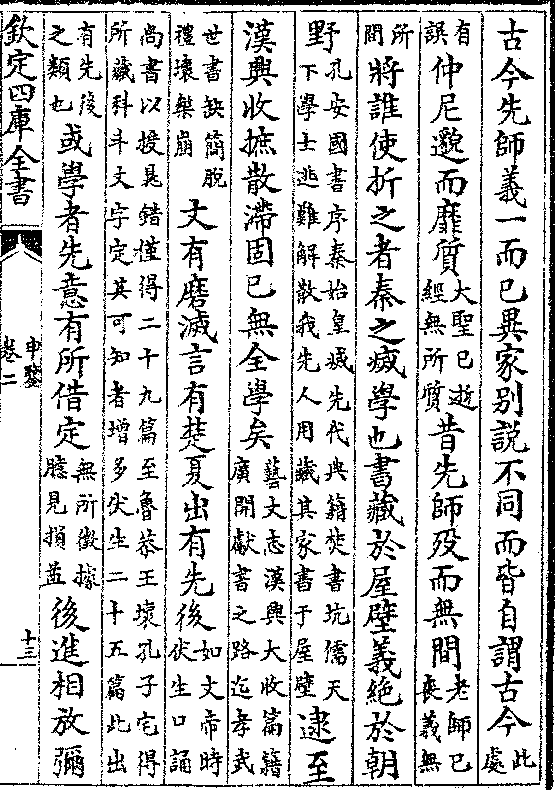 古今先師義一而已異家别說不同而皆自謂古今此處
有誤仲尼邈而靡質大聖已逝經無所質昔先師殁而無間老師已喪義無
所問將誰使折之者秦之烕學也書藏於屋壁義絶於朝
野孔安國書序秦始皇烕先代典籍焚書坑儒天下學士逃難解散我先人用藏其家書于屋壁逮至
漢興收摭散滯固已無全學矣藝文志漢興大收篇籍廣開獻書之路迄孝武
世書缺簡脫禮壞樂崩文有磨滅言有楚夏出有先後如文帝時伏生口誦
尚書以授晁錯僅得二十九篇至魯恭王壞孔子宅得所藏科斗文字定其可知者增多伏生二十五篇此出
有先後之類也或學者先意有所借定無所徵據臆見損益後進相放彌
欽定四庫全書
申鑒
卷二
十三